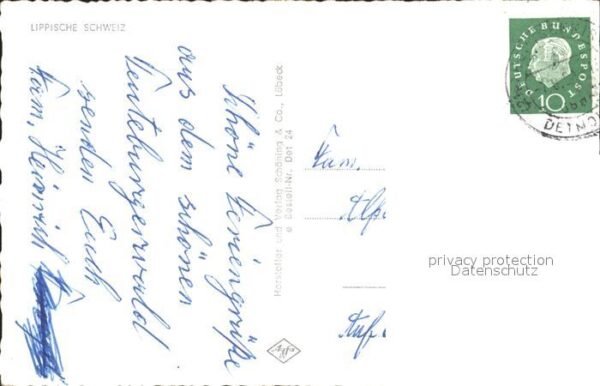 LIPPISCHE SCHWEIZ
Schöne Feriengrüße
aus dem schönen
Teuteburgerwald
senden Euch
Fam. Heinrich
Hersteller und Verlag Schöning & Co., Lübeck
Bestell-Nr. Det 24
Agfa
DEUTSCHE BUNDESPOST
10
DETMO
Fam.
privacy protection
Datenschutz